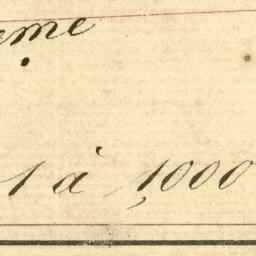 eme
1 à 1,000